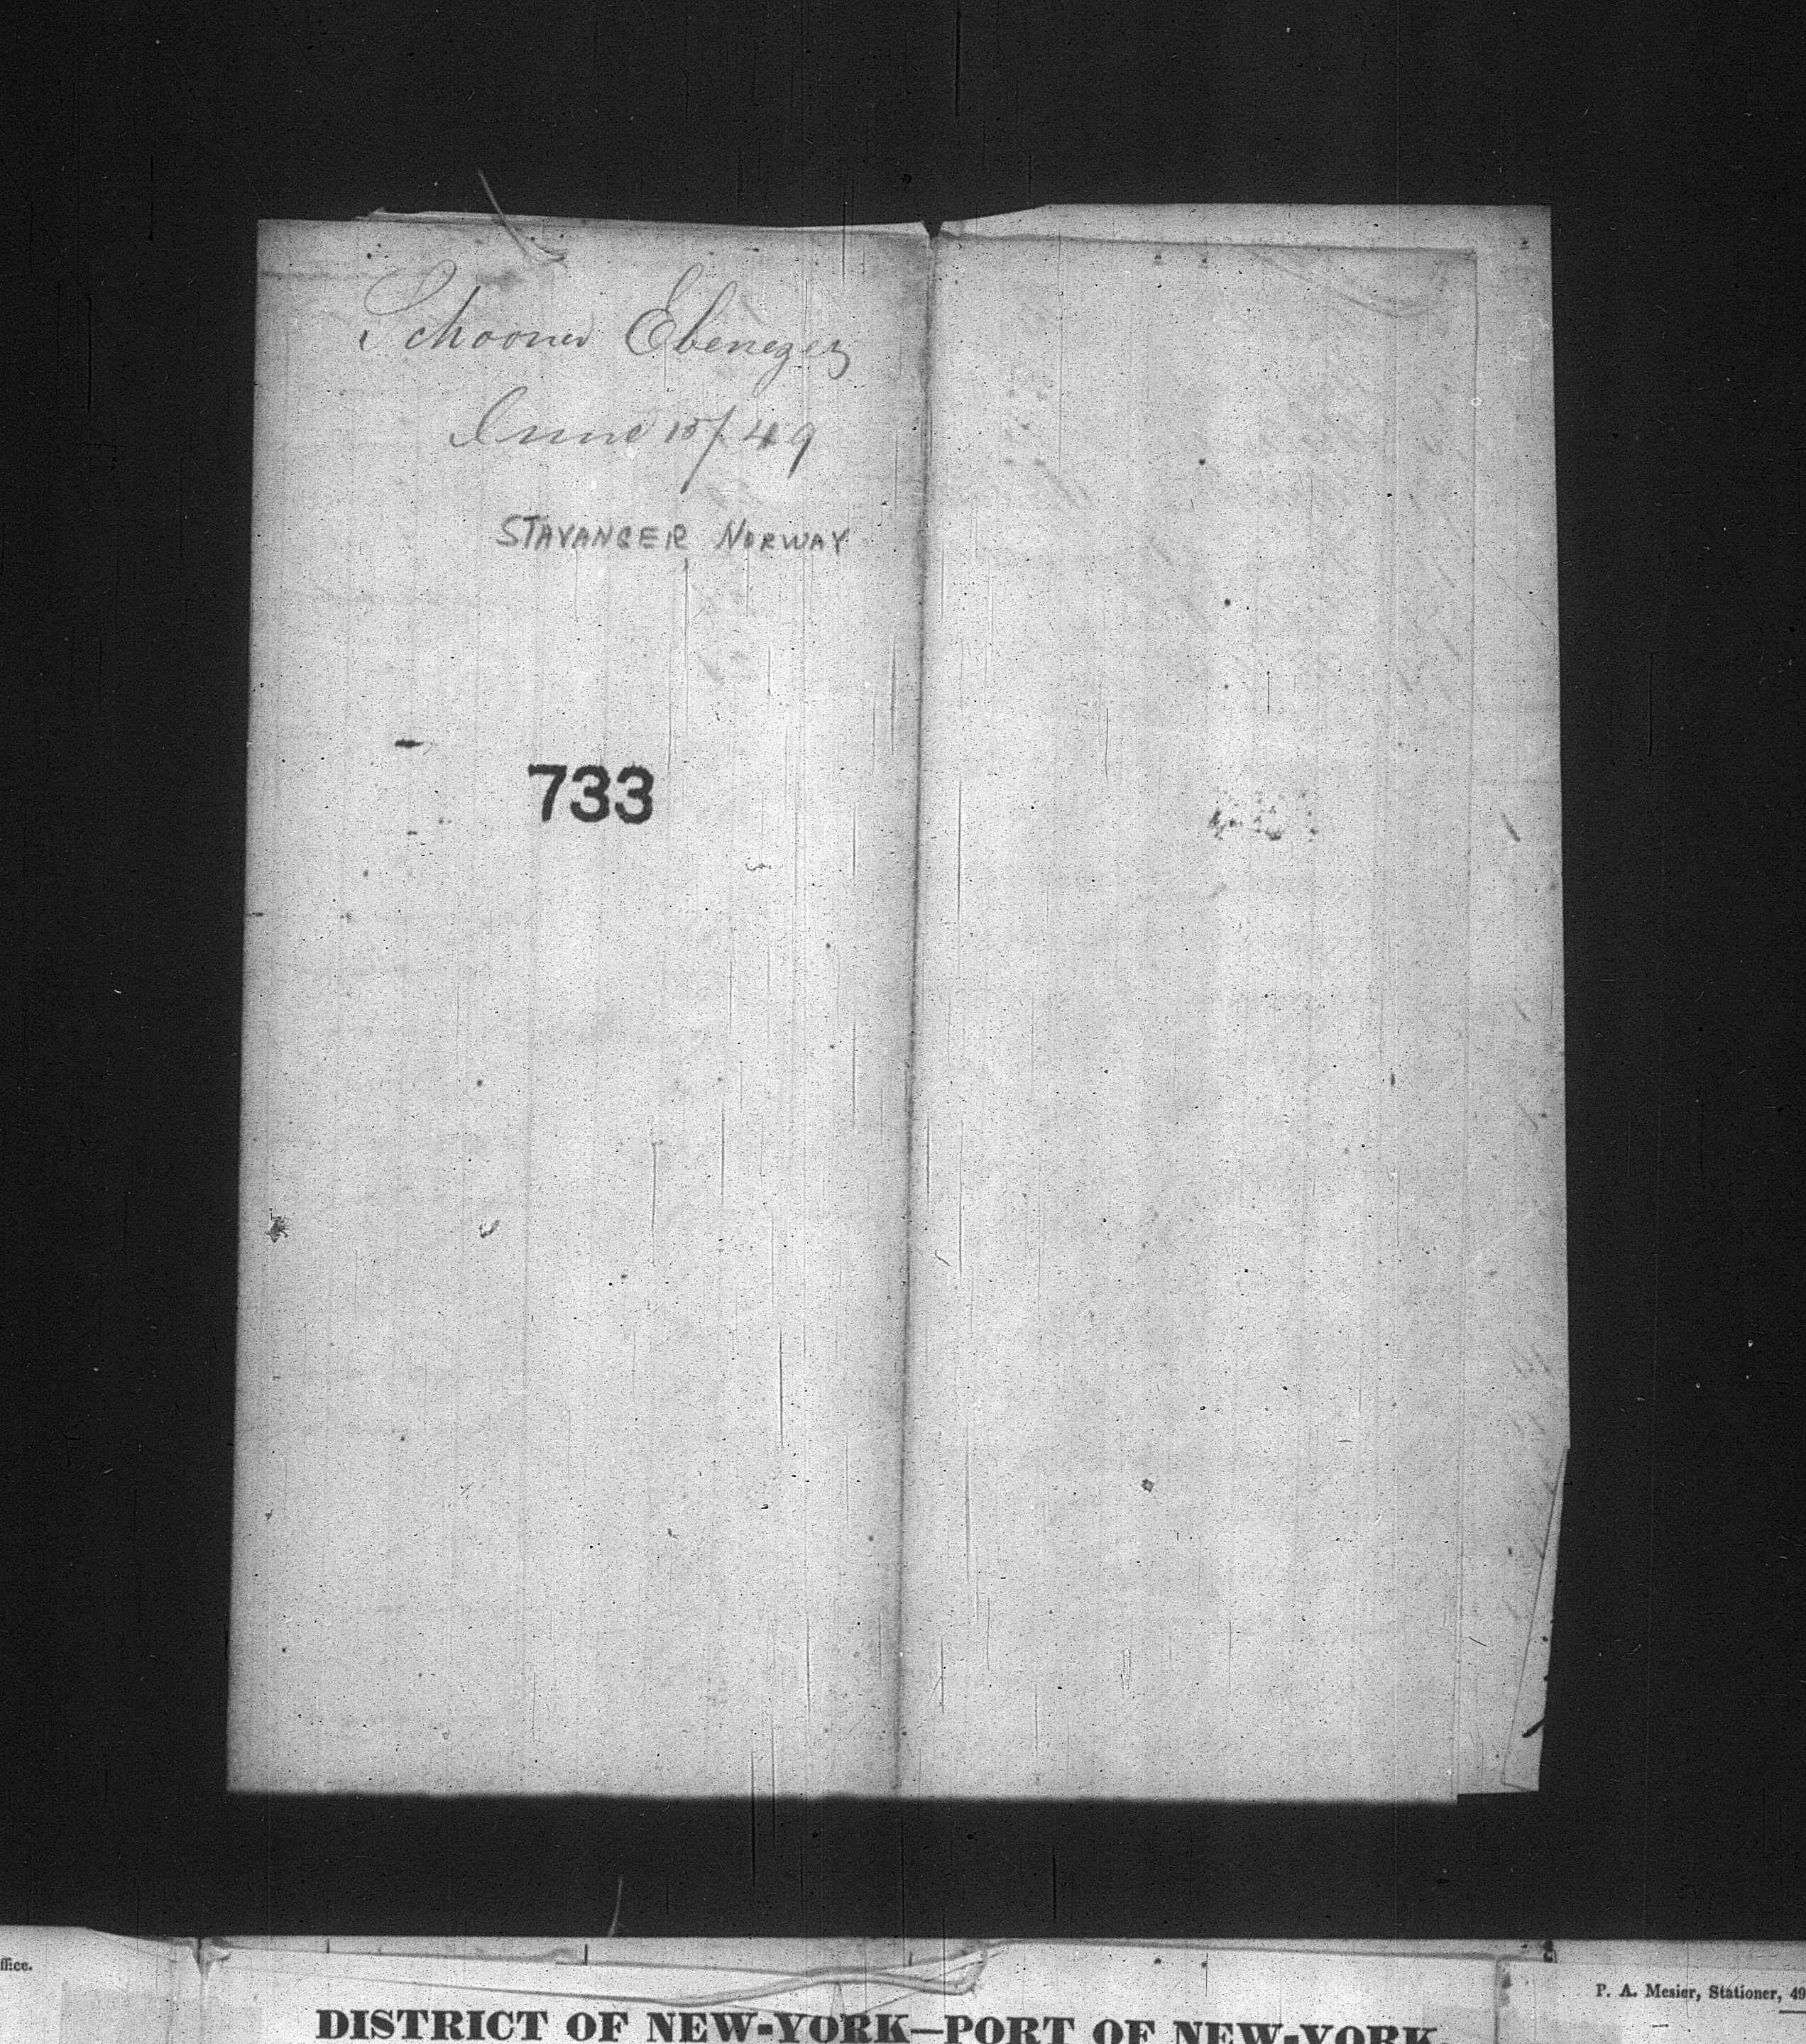 Schooner Ebenezer
June 15/49
STAVANGER NORWAY
733
ffice.
P. A. Mesier, Stationer, 49
DISTRICT OF NEW-YORK—PORT OF NEW-YORK.